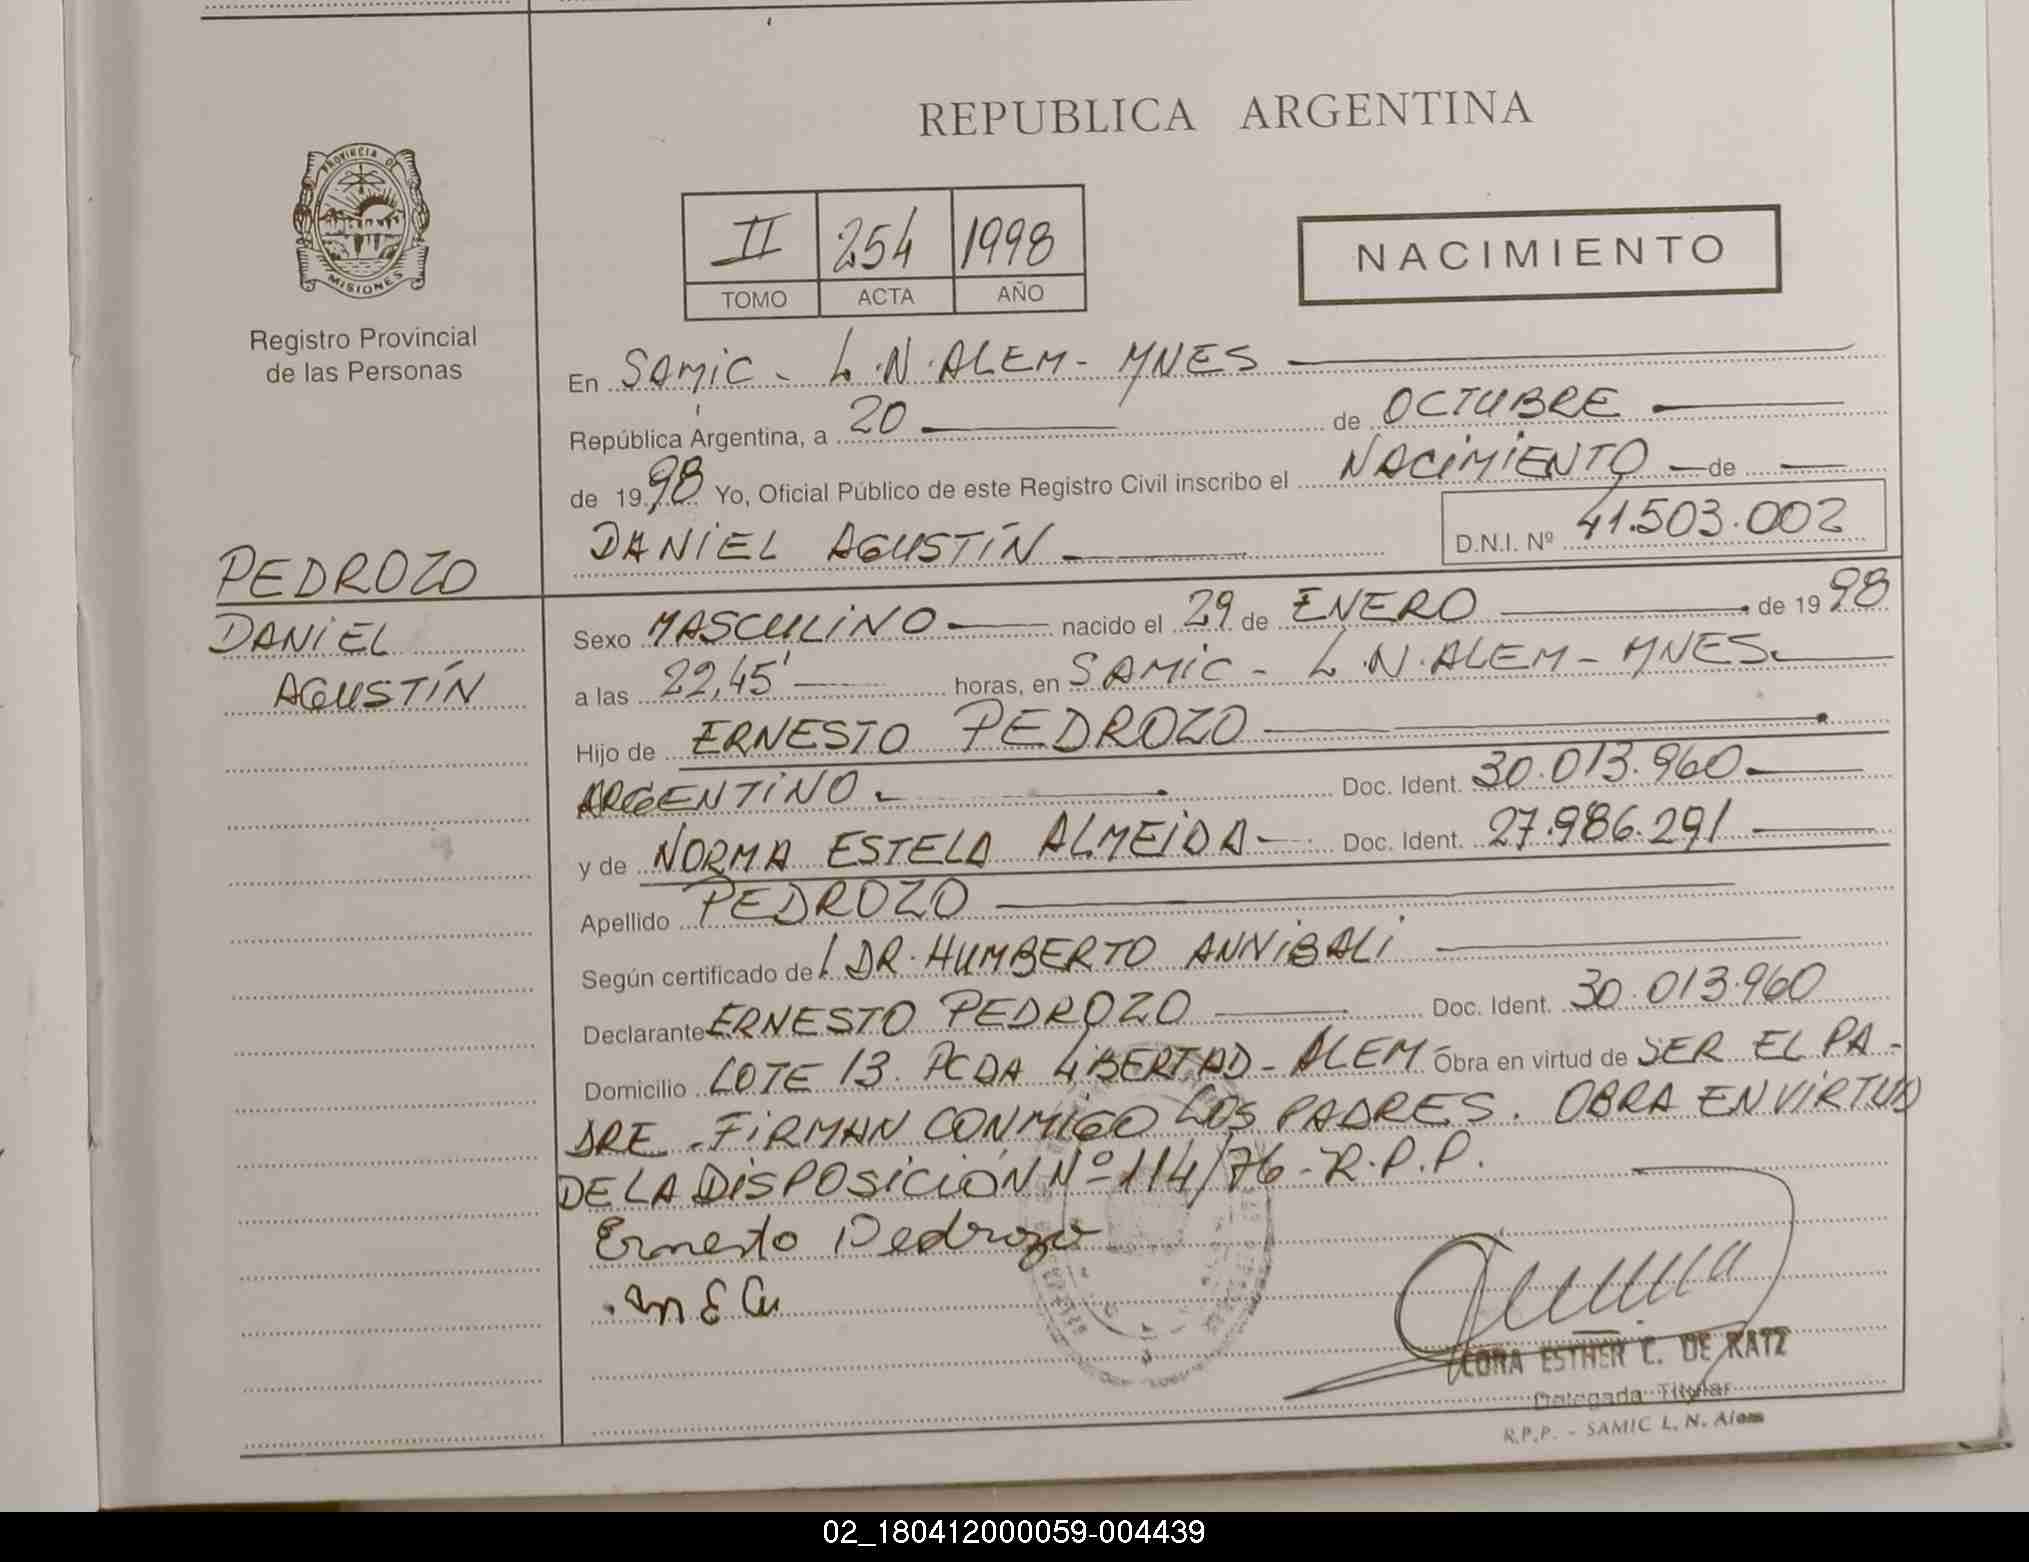 REPUBLICA ARGENTINA
PROVINCIA DE
MISIONES
Registro Provincial
de las Personas
II 254 1998
TOMO ACTA AÑO
NACIMIENTO
En SAMIC - L.N.ALEM - MNES
República Argentina, a 20 de OCTUBRE
de 1998 Yo, Oficial Público de este Registro Civil inscribo el NACIMIENTO de
DANIEL AGUSTÍN D.N.I. Nº 41.503.002
PEDROZO
DANIEL
AGUSTÍN
Sexo MASCULINO nacido el 29 de ENERO de 1998
a las 22,45' horas, en SAMIC - L.N.ALEM - MNES.
Hijo de ERNESTO PEDROZO
ARGENTINO. Doc. Ident. 30.013.960
y de NORMA ESTELA ALMEIDA - Doc. Ident. 27.986.291
Apellido PEDROZO
Según certificado de DR. HUMBERTO ANNIBALI
Declarante ERNESTO PEDROZO Doc. Ident. 30.013.960
Domicilio LOTE 13. PCDA LIBERTAD - ALEM Obra en virtud de SER EL PA-
DRE. FIRMAN CONMIGO LOS PADRES. OBRA EN VIRTUD
DE LA DISPOSICIÓN Nº 114/76 - R.P.P.
Ernesto Pedrozo
CORA ESTHER C. DE KATZ
Delegada Titular
R.P.P. - SAMIC L. N. Alem
02_180412000059-004439